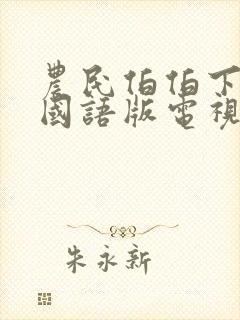 農民伯伯下
國語版電視
朱永新